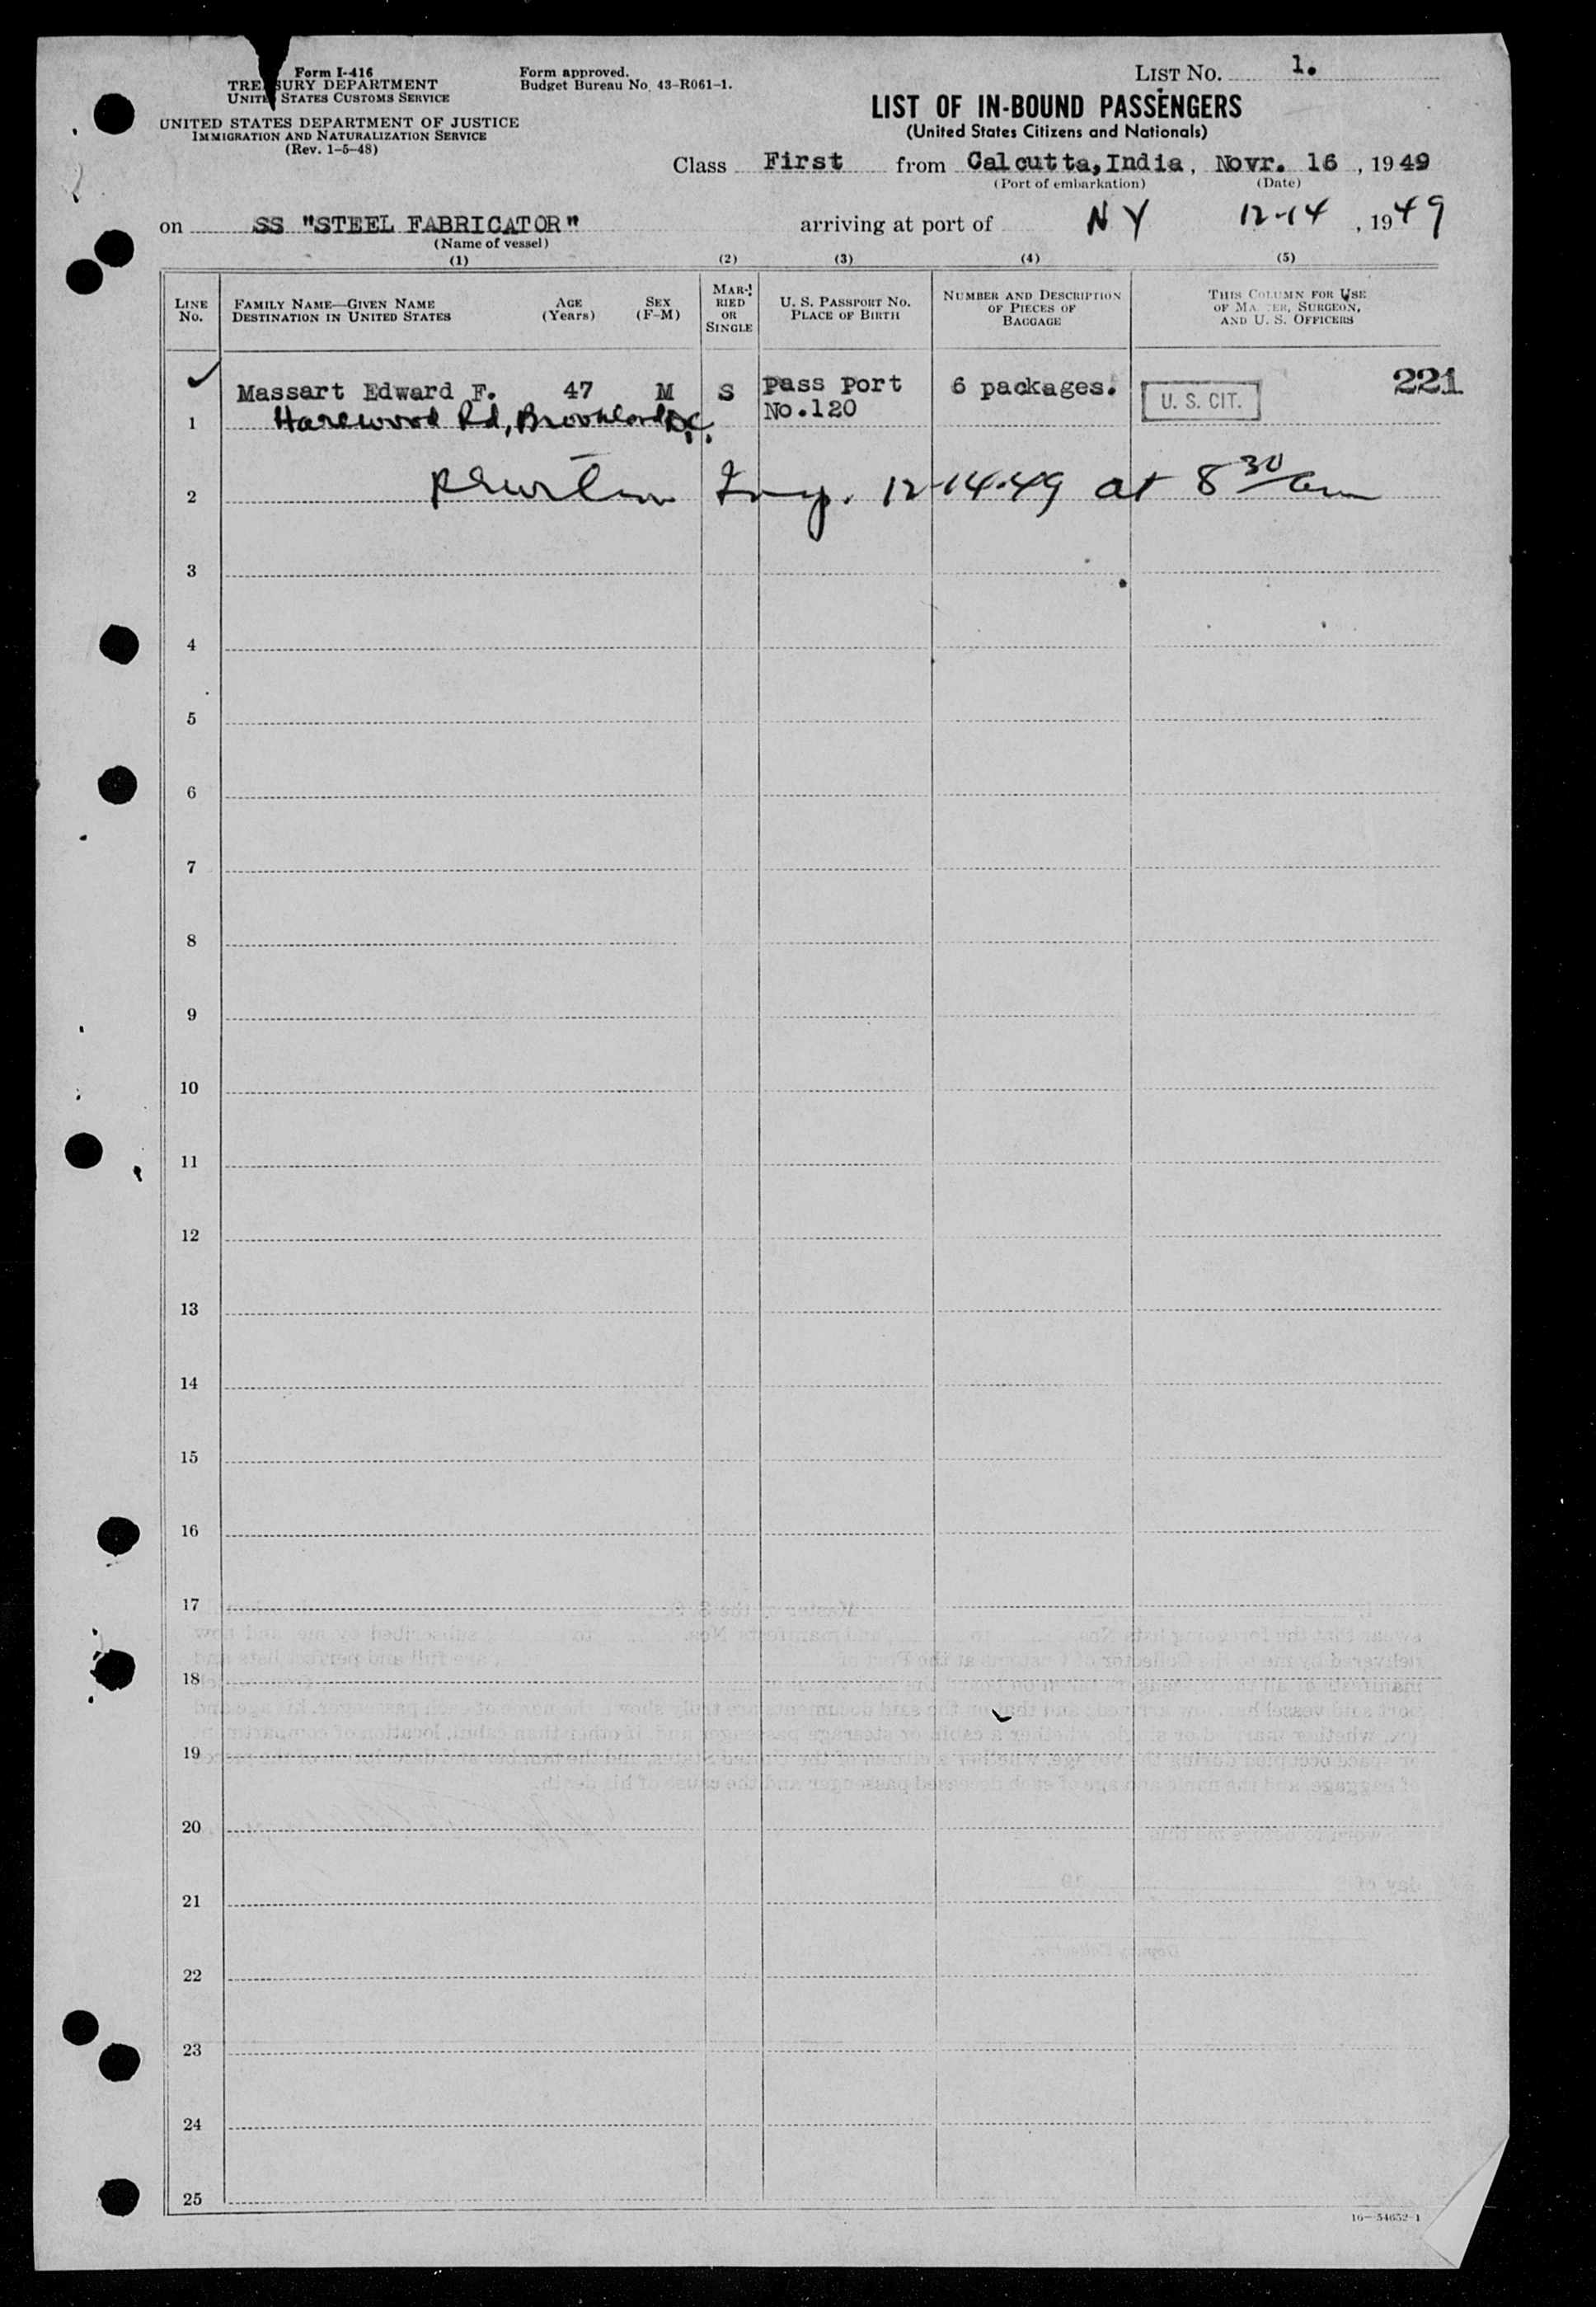 Form I-416
TREASURY DEPARTMENT
UNITED STATES CUSTOMS SERVICE
UNITED STATES DEPARTMENT OF JUSTICE
IMMIGRATION AND NATURALIZATION SERVICE
(Rev. 1-5-48)
Form approved.
Budget Bureau No. 43-R061-1.
LIST No. 1.
LIST OF IN-BOUND PASSENGERS
(United States Citizens and Nationals)
Class First from Calcutta, India, Novr. 16, 1949
(Port of embarkation) (Date)
on SS "STEEL FABRICATOR" arriving at port of NY 12-14, 1949
(Name of vessel)
(1) (2) (3) (4) (5)
LINE No.
FAMILY NAME—GIVEN NAME
DESTINATION IN UNITED STATES
AGE (Years)
SEX (F-M)
MARRIED OR SINGLE
U. S. PASSPORT NO.
PLACE OF BIRTH
NUMBER AND DESCRIPTION OF PIECES OF BAGGAGE
THIS COLUMN FOR USE OF MASTER, SURGEON, AND U. S. OFFICERS
1 Massart Edward F. 47 M S Pass Port No.120 6 packages. U. S. CIT. 221
Harewood Rd, Brookland D.C.
2 Insp. 12-14-49 at 8 30 am
3
4
5
6
7
8
9
10
11
12
13
14
15
16
17
18
19
20
21
22
23
24
25
16—54652-1